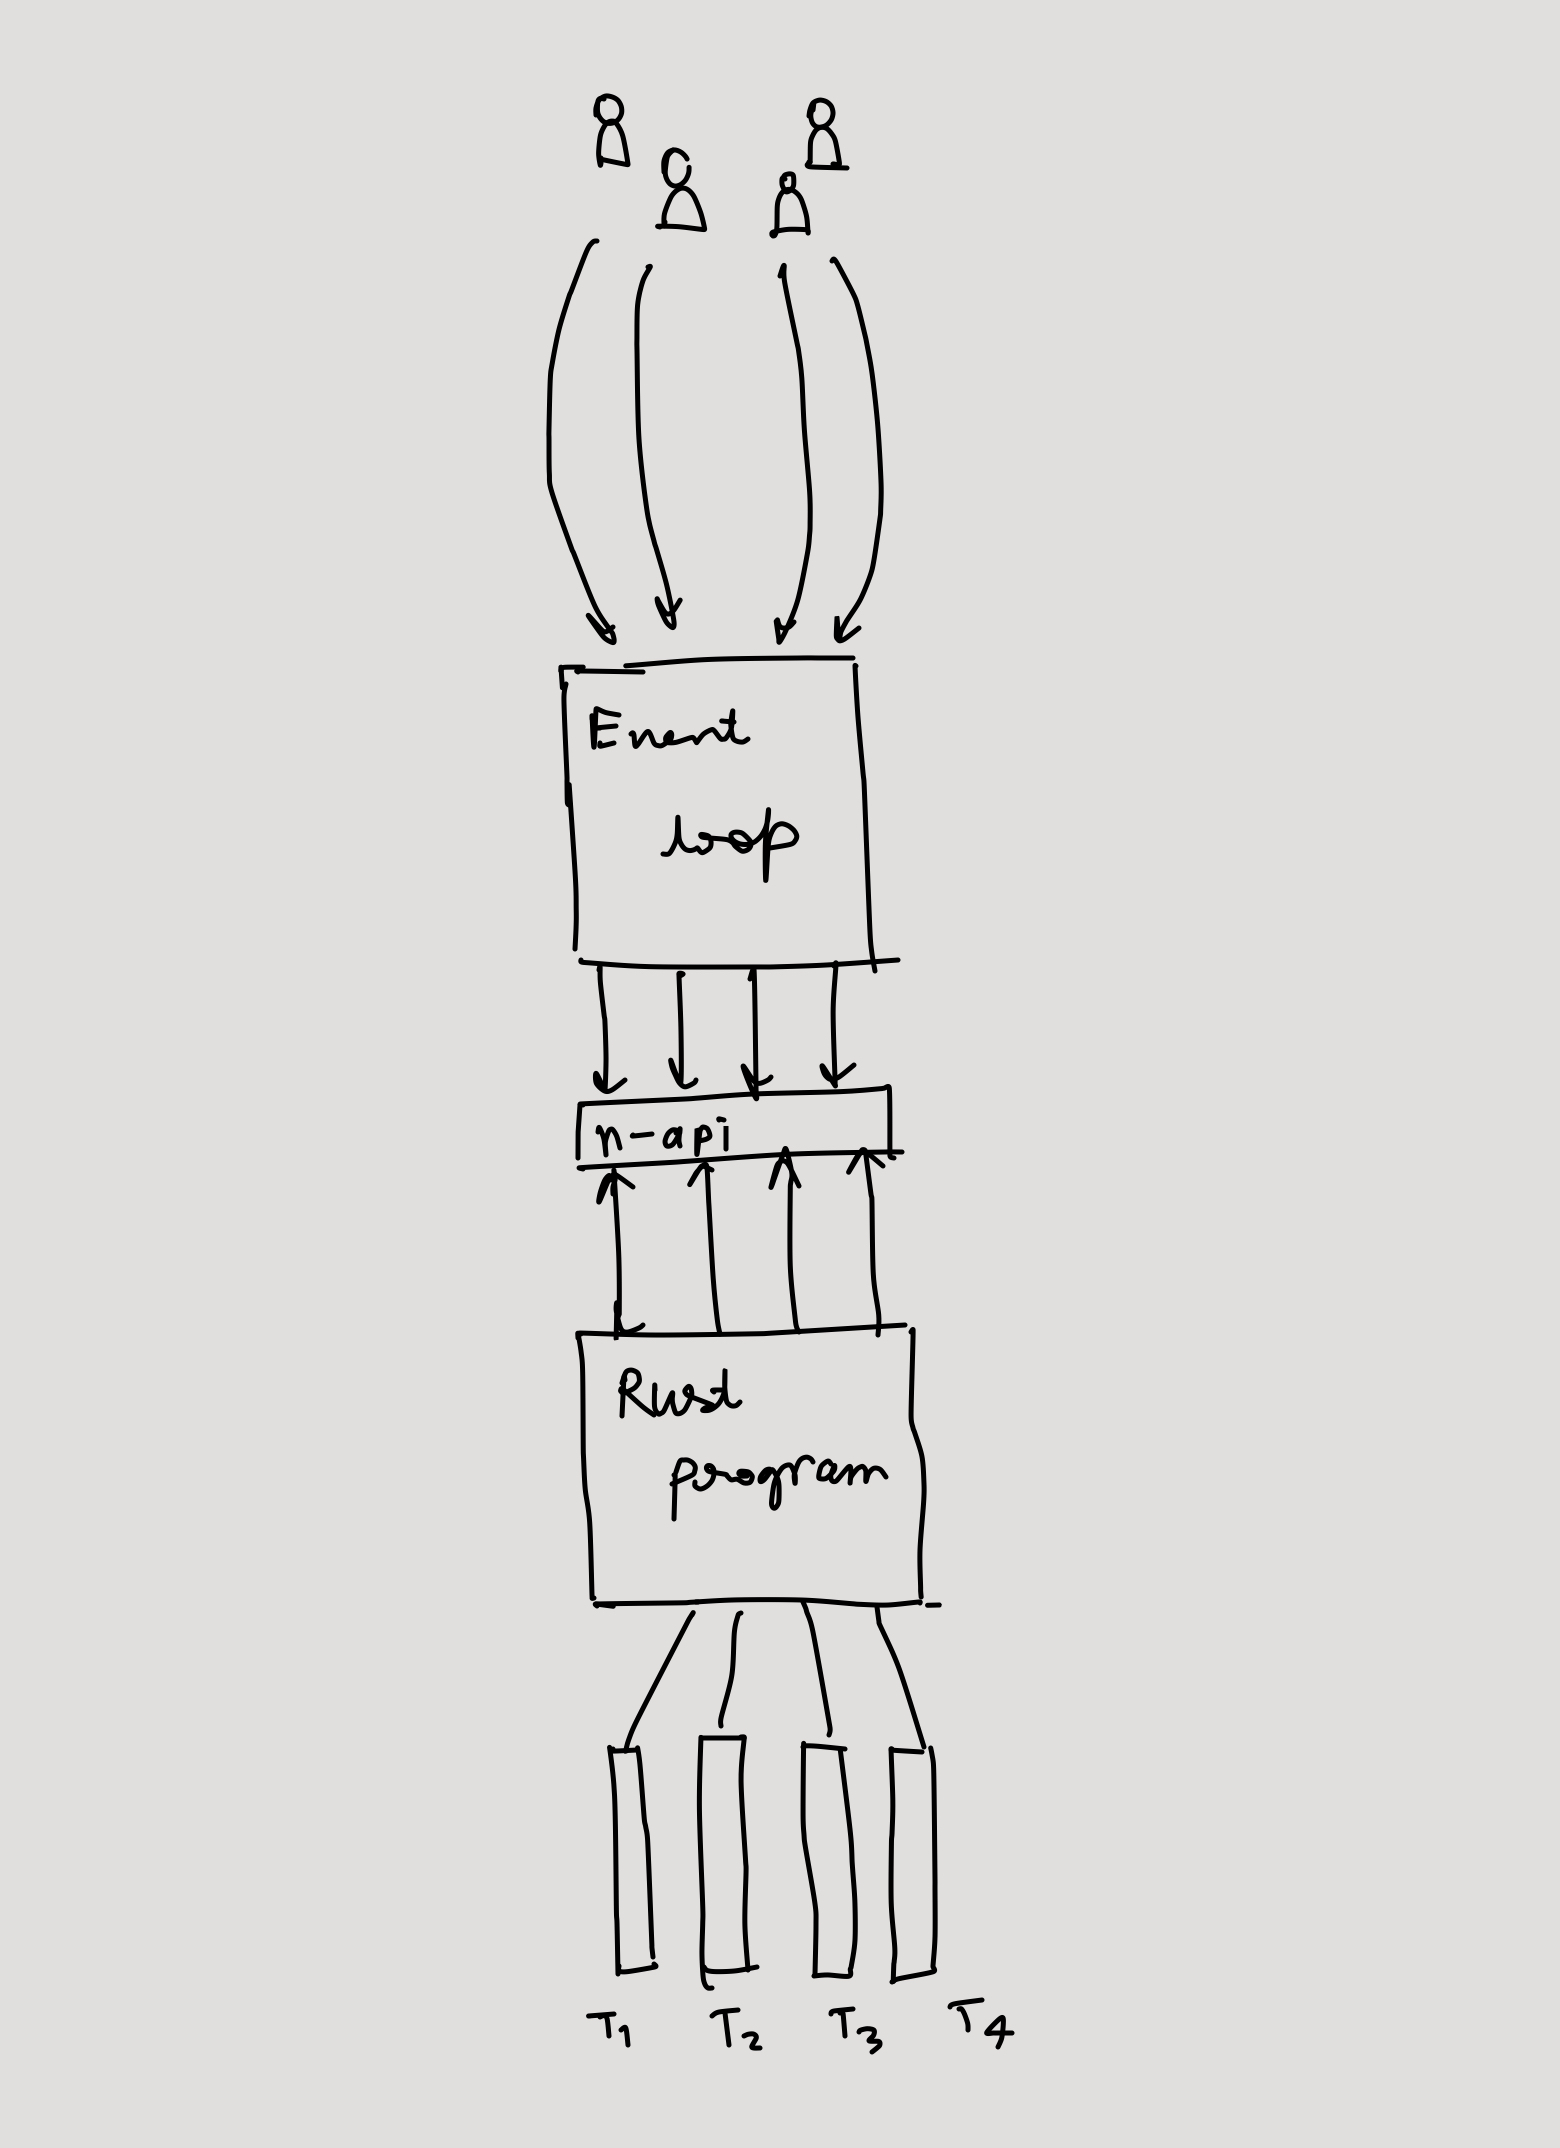 Event
loop
n-api
Rust
program
T1 T2 T3 T4